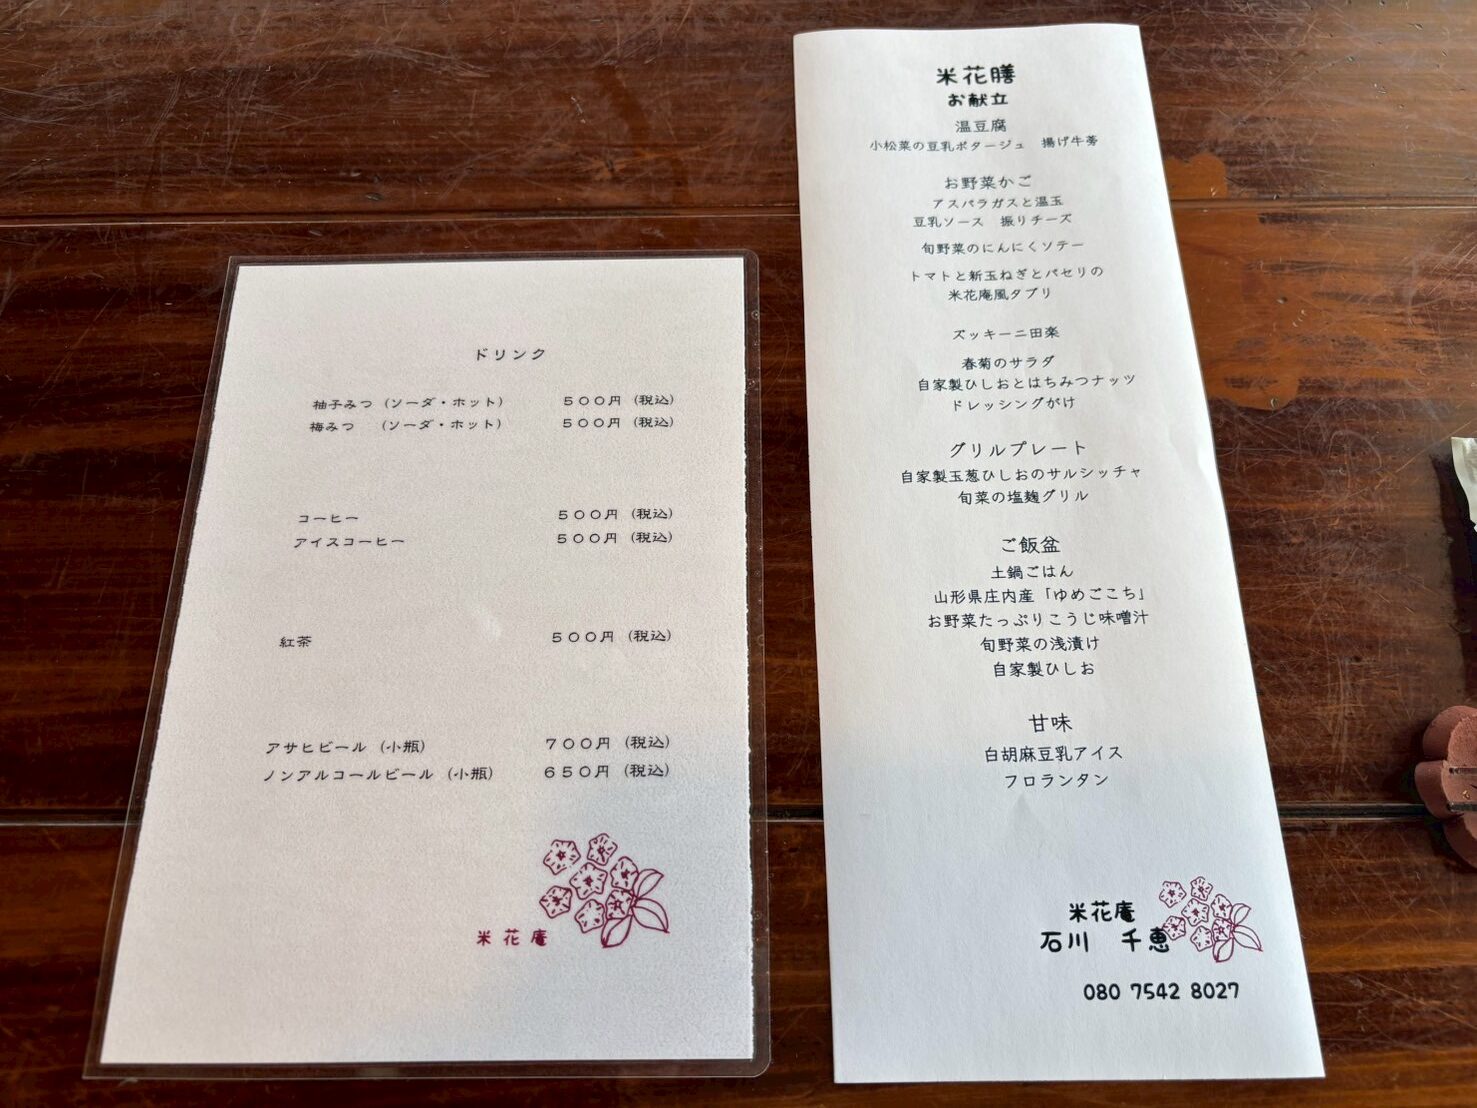 ドリンク
柚子みつ（ソーダ・ホット） 500円（税込）
梅みつ （ソーダ・ホット） 500円（税込）
コーヒー 500円（税込）
アイスコーヒー 500円（税込）
紅茶 500円（税込）
アサヒビール（小瓶） 700円（税込）
ノンアルコールビール（小瓶） 650円（税込）
米花庵
米花膳
お献立
温豆腐
小松菜の豆乳ポタージュ 揚げ牛蒡
お野菜かご
アスパラガスと温玉
豆乳ソース 振りチーズ
旬野菜のにんにくソテー
トマトと新玉ねぎとパセリの
米花庵風タブリ
ズッキーニ田楽
春菊のサラダ
自家製ひしおとはちみつナッツ
ドレッシングがけ
グリルプレート
自家製玉葱ひしおのサルシッチャ
旬菜の塩麹グリル
ご飯盆
土鍋ごはん
山形県庄内産「ゆめごこち」
お野菜たっぷりこうじ味噌汁
旬野菜の浅漬け
自家製ひしお
甘味
白胡麻豆乳アイス
フロランタン
米花庵
石川 千恵
080 7542 8027